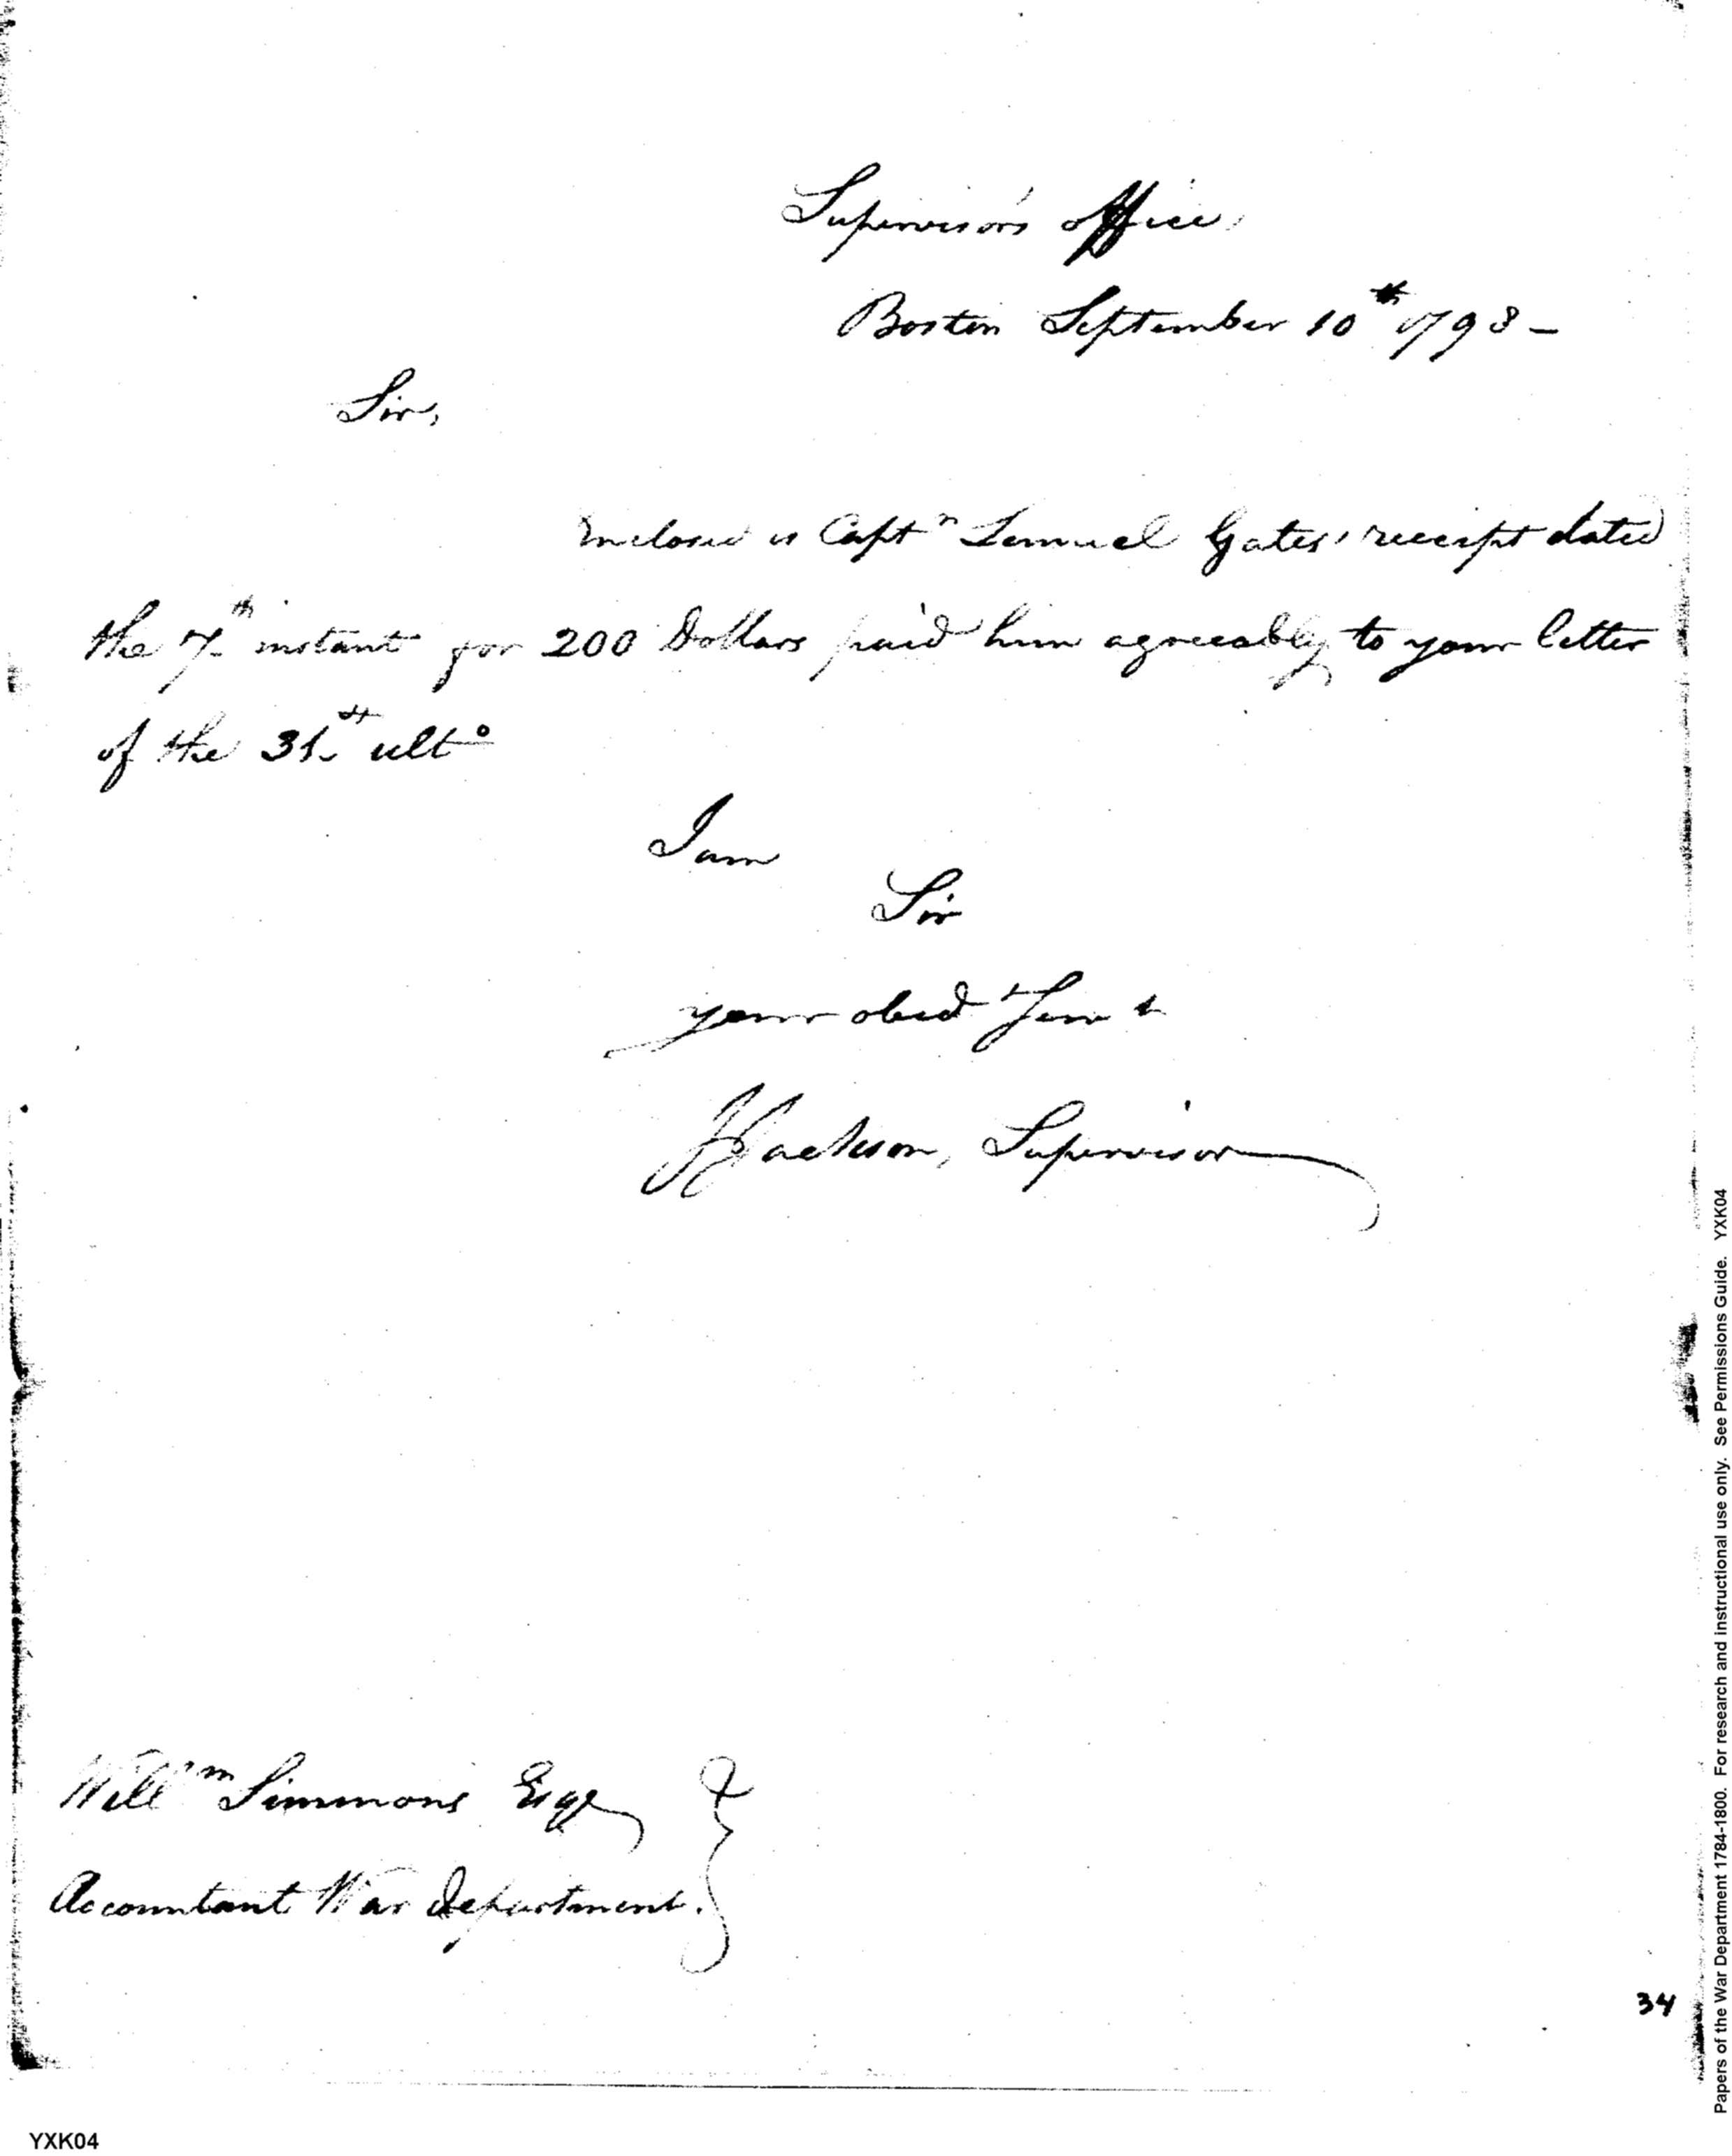 Supervisor's office,
Boston September 10th 1798 -
Sir,
Enclosed is Captn Lemuel Gates' receipt dated
the 7th instant for 200 Dollars paid him agreeably to your letter
of the 31st ulto
I am
Sir
your obedt Servt
J Jackson, Supervisor
Willm Simmons Esqr
Accountant War Department.
34
YXK04
Papers of the War Department 1784-1800. For research and instructional use only. See Permissions Guide. YXK04